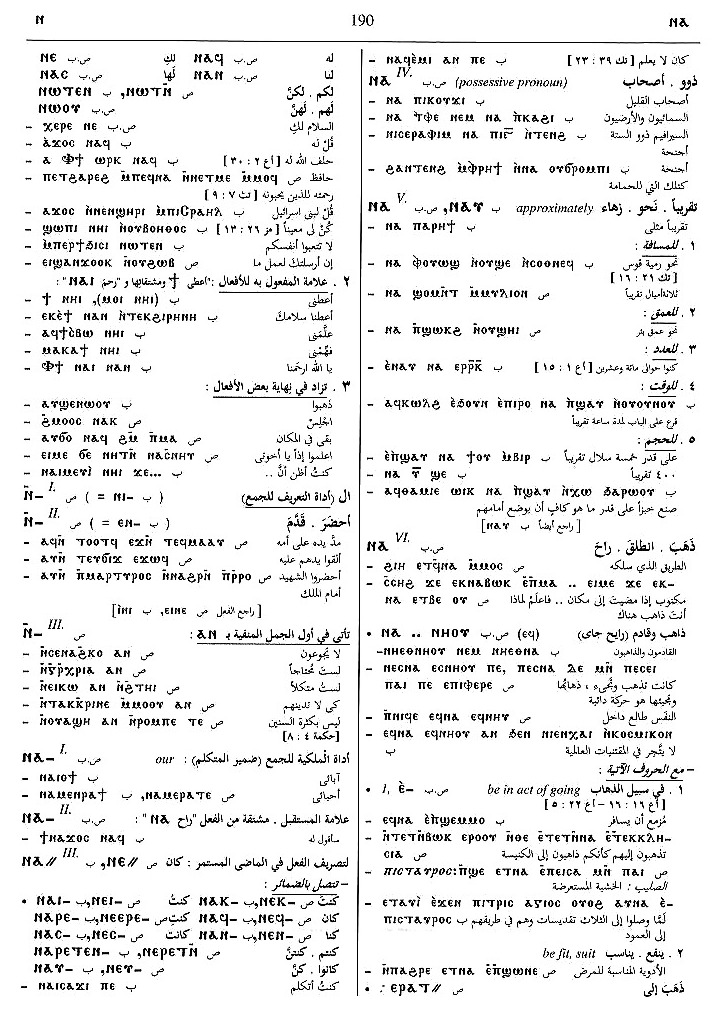 ⲛ 190 ⲛⲁ
ⲛⲉ ص.ب لكِ ⲛⲁϥ ص.ب له
ⲛⲁⲥ ص.ب لَها ⲛⲁⲛ ص.ب لنا
ⲛⲱⲧⲉⲛ ب, ⲛⲱⲧⲛ̄ ص لكم . لكنَّ
ⲛⲱⲟⲩ ص.ب لهم . لهنَّ
– ⲭⲉⲣⲉ ⲛⲉ ص.ب السلام لكِ
– ⲁϫⲟⲥ ⲛⲁϥ ص.ب قُلْ له
– ⲁ ⲫϯ ⲱⲣⲕ ⲛⲁϥ ب حلف الله له [أع ٢ : ٣٠]
– ⲡⲉⲧϩⲁⲣⲉϩ ⲙ̄ⲡⲉϥⲛⲁ ⲛ̄ⲛⲉⲧⲙⲉ ⲙ̄ⲙⲟϥ ص حافظ
رحمته للذين يحبونه [تث ٧ : ٩]
– ⲁϫⲟⲥ ⲛ̀ⲛⲉⲛϣⲏⲣⲓ ⲙ̀ⲡⲓⲥⲣⲁⲏⲗ ب قُلْ لبنى اسرائيل
– ϣⲱⲡⲓ ⲛⲏⲓ ⲛ̀ⲟⲩⲃⲟⲏⲑⲟⲥ ب كُنْ لى معيناً
– ⲙ̀ⲡⲉⲣϯϧⲓⲥⲓ ⲛⲱⲧⲉⲛ ب لا تتعبوا أنفسكم
– ⲉⲓϣⲁⲛϫⲟⲟⲕ ⲛ̄ⲟⲩϩⲱⲃ ص إن أرسلتك لعمل ما
٢ . علامة المفعول به للأفعال : "أعطى ϯ ومشتقاتها و "رحم ⲛⲁⲓ" :
– ϯ ⲛⲏⲓ ,(ⲙⲟⲓ ⲛⲏⲓ) ب أعطنى
– ⲉⲕⲉ̀ϯ ⲛⲁⲛ ⲛ̀ⲧⲉⲕϩⲓⲣⲏⲛⲏ ب أعطنا سلامك
– ⲁϥϯⲥⲃⲱ ⲛⲏⲓ ب علَّمَنى
– ⲙⲁⲕⲁϯ ⲛⲏⲓ ب فهِّمنى
– ⲫϯ ⲛⲁⲓ ⲛⲁⲛ ب يا الله ارحمنا
٣ . تزاد في نهاية بعض الأفعال :
– ⲁⲩϣⲉⲛⲱⲟⲩ ب ذهبوا
– ϩⲙⲟⲟⲥ ⲛⲁⲕ ص اجلِسْ
– ⲁϥϭⲟ ⲛⲁϥ ϩⲙ̄ ⲡⲙⲁ ص بقى في المكان
– ⲉⲓⲙⲉ ϭⲉ ⲛⲏⲧⲛ̄ ⲛⲁⲥⲛⲏⲩ ص اعلموا إذاً يا أخوتى
– ⲛⲁⲓⲙⲉⲩⲓ ⲛⲏⲓ ϫⲉ... ب كنتُ أظن أنَّ ..
ⲛ̄– I. ( ب ⲛⲓ– = ) ص ال (أداة التعريف للجمع)
ⲛ̄– II. ( ب ⲉⲛ– = ) ص أحضَرَ . قَدَّمَ
– ⲁϥⲛ̄ ⲧⲟⲟⲧϥ ⲉϫⲛ̄ ⲧⲉϥⲙⲁⲁⲩ ص مدَّ يده على أمه
– ⲁⲩⲛ̄ ⲧⲉⲩϭⲓϫ ⲉϫⲱϥ ص ألقوا يدهم عليه
– ⲁⲩⲛ̄ ⲡⲙⲁⲣⲧⲩⲣⲟⲥ ⲛ̄ⲛⲁϩⲣⲛ̄ ⲡⲣ̄ⲣⲟ ص أحضروا الشهيد
أمام الملك
[راجع الفعل ⲉⲓⲛⲉ ص, ⲓⲛⲓ ب]
ⲛ̄– III. ص تأتى في أول الجمل المنفية بـ ⲁⲛ :
– ⲛ̄ⲥⲉⲛⲁϩⲕⲟ ⲁⲛ ص لا يجوعون
– ⲛ̄ⲅⲣ̄ⲭⲣⲓⲁ ⲁⲛ ص لستَ مُحتاجاً
– ⲛ̄ⲉⲓⲕⲱ ⲁⲛ ⲛ̄ϩⲧⲏⲓ ص لستُ متكلاً
– ⲛ̄ⲧⲁⲕⲕⲣⲓⲛⲉ ⲙ̄ⲙⲟⲟⲩ ⲁⲛ ص كى لا تدينهم
– ⲛ̄ⲟⲩⲁϣⲏ ⲁⲛ ⲛ̄ⲣⲟⲙⲡⲉ ⲧⲉ ص ليس بكثرة السنين
[حكمة ٤ : ٨]
ⲛⲁ– I. ص.ب our أداة الملكية للجمع (ضمير المتكلم) :
– ⲛⲁⲓⲟϯ ب آبائى
– ⲛⲁⲙⲉⲛⲣⲁϯ ب, ⲛⲁⲙⲉⲣⲁⲧⲉ ص أحبائى
ⲛⲁ– II. ص.ب علامة المستقبل . مشتقة من الفعل "راح ⲛⲁ" :
– ϯⲛⲁϫⲟⲥ ⲛⲁϥ ب سأقول له
ⲛⲁ// III. ب ,ⲛⲉ// ص لتصريف الفعل في الماضى المستمر : كان
– تتصل بالضمائر :
• ⲛⲁⲓ– ب,ⲛⲉⲓ– ص كنتُ ⲛⲁⲕ– ب,ⲛⲉⲕ– ص كنتَ
ⲛⲁⲣⲉ– ب,ⲛⲉⲉⲣⲉ– ص كنتِ ⲛⲁϥ– ب,ⲛⲉϥ– ص كان
ⲛⲁⲥ– ب,ⲛⲉⲥ– ص كانت ⲛⲁⲛ– ب,ⲛⲉⲛ– ص كنا
ⲛⲁⲣⲉⲧⲉⲛ– ب ,ⲛⲉⲣⲉⲧⲛ̄ ص كنتم . كنتنَّ
ⲛⲁⲩ– ب ,ⲛⲉⲩ– ص كانوا . كنَّ
– ⲛⲁⲓⲥⲁϫⲓ ⲡⲉ ب كنتُ أتكلم
– ⲛⲁϥⲉ̀ⲙⲓ ⲁⲛ ⲡⲉ ب كان لا يعلم [تك ٣٩ : ٢٣]
ⲛⲁ IV. ص.ب (possessive pronoun) ذوو . أصحاب
– ⲛⲁ ⲡⲓⲕⲟⲩϫⲓ ب أصحاب القليل
– ⲛⲁ ⲧ̀ⲫⲉ ⲛⲉⲙ ⲛⲁ ⲡ̀ⲕⲁϩⲓ ب السمائيون والأرضيون
– ⲛⲓⲥⲉⲣⲁⲫⲓⲙ ⲛⲁ ⲡⲓⲋ̄ ⲛ̀ⲧⲉⲛϩ ب السيرافيم ذوو الستة
أجنحة
– ϩⲁⲛⲧⲉⲛϩ ⲙ̀ⲫⲣⲏϯ ⲛ̀ⲛⲁ ⲟⲩϭⲣⲟⲙⲡⲓ ب أجنحة
كتلك التى للحمامة
ⲛⲁ V. ص.ب ,ⲛⲁⲩ ب approximately تقريباً . نحو . زهاء
– ⲛⲁ ⲡⲁⲣⲏϯ ب تقريباً مثلى
١ . للمسافة :
– ⲛⲁ ⲫⲟⲩⲱϣ ⲛⲟⲩϣⲉ ⲛ̀ⲥⲟⲟⲛⲉϥ ب نحو رمية قوس
[تك ٢١ : ١٦]
– ⲛⲁ ϣⲟⲙⲛ̄ⲧ ⲙ̄ⲙⲩⲗⲓⲟⲛ ص ثلاثة أميال تقريباً
٢ . للعمق :
– ⲛⲁ ⲡϣⲱⲕϩ ⲛ̄ⲟⲩϣⲏⲓ ص نحو عمق بئر
٣ . للعدد :
– ⲉ̀ⲛⲁⲩ ⲛⲁ ⲉⲣⲣ̄ⲕ̄ ب كنوا حوالى مائة وعشرين [أع ١ : ١٥]
٤ . للوقت :
– ⲁϥⲕⲱⲗϩ ⲉ̀ϧⲟⲩⲛ ⲉ̀ⲡⲓⲣⲟ ⲛⲁ ⲡ̀ϣⲁⲩ ⲛ̀ⲟⲩⲟⲩⲛⲟⲩ ب
قرع على الباب لمدة ساعة تقريباً
٥ . للحجم :
– ⲉ̀ⲡ̀ϣⲁⲩ ⲛⲁ ϯⲟⲩ ⲙ̀ⲃⲓⲣ ب على قدر خمسة سلال تقريباً
– ⲛⲁ ⲩ̄ ϣⲉ ب ٤٠٠ تقريباً
– ⲁϥⲑⲁⲙⲓⲉ ⲱⲓⲕ ⲛⲁ ⲡ̀ϣⲁⲩ ⲛ̀ⲭⲱ ϧⲁⲣⲱⲟⲩ ب
صنع خبزاً على قدر ما هو كافٍ أن يوضع أمامهم
[راجع أيضاً ⲛⲁⲩ ب]
ⲛⲁ VI. ص.ب ذهَبَ . انطلق . راح
– ϩⲓⲏ ⲉⲧϥⲛⲁ ⲙ̄ⲙⲟⲥ ص الطريق الذي سلكه
– ϥⲥⲏϩ ϫⲉ ⲉⲕⲛⲁⲃⲱⲕ ⲉ̄ⲡⲙⲁ .. ⲉⲓⲙⲉ ϫⲉ ⲉⲕ–
ⲛⲁ ⲉⲧⲃⲉ ⲟⲩ ص مكتوب إذا مضيت إلى مكان .. فاعلَمْ لماذا
أنت ذاهب هناك
• ⲛⲁ .. ⲛⲏⲟⲩ ص.ب (eq) ذاهب وقادم (رايح جاى)
–ⲛⲏⲉⲑⲛⲏⲟⲩ ⲛⲉⲙ ⲛⲏⲉⲑⲛⲁ ب القادمون والذاهبون
– ⲛⲉⲥⲛⲁ ⲉⲥⲛⲏⲟⲩ ⲡⲉ, ⲡⲉⲥⲛⲁ ⲇⲉ ⲙⲛ̄ ⲡⲉⲥⲉⲓ
ⲡⲁⲓ ⲡⲉ ⲉⲡⲓⲫⲉⲣⲉ ص كانت تذهب وتجىء ، ذهابُها
ومجيئها هو حركة دائبة
– ⲡ̄ⲛⲓϥⲉ ⲉϥⲛⲁ ⲉϥⲛⲏⲩ ص النفس طالع داخل
– ⲉϥⲛⲁ ⲉϥⲛⲏⲟⲩ ⲁⲛ ϧⲉⲛ ⲛⲓⲉⲛⲭⲁⲓ ⲛ̀ⲕⲟⲥⲙⲓⲕⲟⲛ
ب لا يتَّجر في المقتنيات العالمية
– مع الحروف الآتية :
• 1, ⲉ̀– ص.ب be in act of going ١ . في سبيل الذهاب
[أع ١٦ : ١٦–أع ٢٢ : ٥]
– ⲉϥⲛⲁ ⲉ̄ⲡϣⲉⲙⲙⲟ ص مُزمع أن يسافر
– ⲛ̄ⲧⲉⲧⲛ̄ⲃⲱⲕ ⲉⲣⲟⲟⲩ ⲛ̄ⲑⲉ ⲉ̄ⲧⲉⲧⲛ̄ⲛⲁ ⲉ̄ⲧⲉⲕⲕⲗⲏ–
ⲥⲓⲁ ص تذهبون إليهم كأنكم ذاهبون إلى الكنيسة
– ⲡⲓⲥⲧⲁⲩⲣⲟⲥ:ⲡ̄ϣⲉ ⲉⲧⲛⲁ ⲉ̄ⲡⲉⲓⲥⲁ ⲙⲛ̄ ⲡⲁⲓ ص
الصليب : الخشبة المستعرضة
– ⲉⲧⲁⲩⲓ̀ ⲉϫⲉⲛ ⲡⲓⲧⲣⲓⲥ ⲁⲅⲓⲟⲥ ⲟⲩⲟϩ ⲁⲩⲛⲁ ⲉ̀–
ⲡⲓⲥⲧⲁⲩⲣⲟⲥ ب لمَّا وصلوا إلى الثلاث تقديسات وهم في طريقهم
إلى العمود
be fit, suit ٢ . ينفع . يناسب
– ⲛ̄ⲡⲁϩⲣⲉ ⲉⲧⲛⲁ ⲉ̄ⲡϣⲱⲛⲉ ص الأدوية المناسبة للمرض
• : ⲉⲣⲁⲧ// ص ذهَبَ إلى